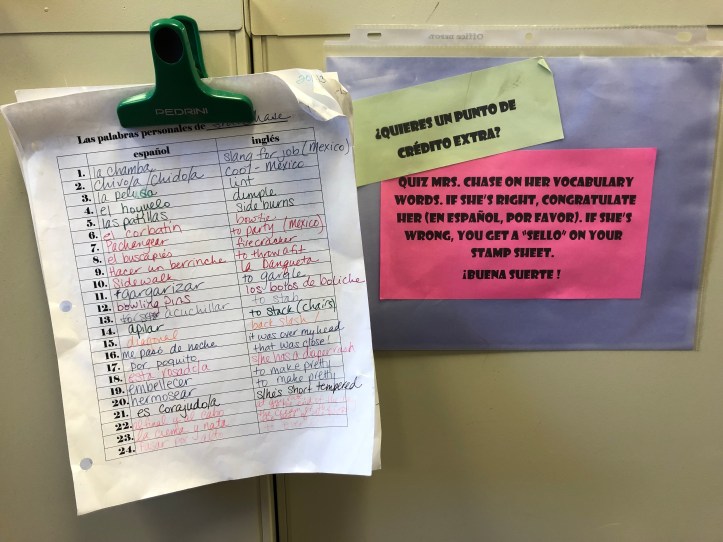 PEDRINI
Las palabras personales de Chase
español inglés
1. la chamba slang for job (Mexico)
2. chivo/a / chido/a cool - Mexico
3. la pelusa lint
4. el hoyuelo dimple
5. las patillas side burns
6. el corbatín bowtie
7. Pachangear to party (Mexico)
8. el buscapiés firecracker
9. Hacer un berrinche to throw a fit
10. Sidewalk la banqueta
11. gargarizar to gargle
12. bowling pins los bolos de boliche
13. acuchillar to stab
14. apilar to stack (chairs)
15. diagonal back slash /
16. me pasó de noche it was over my head
17. por poquito that was close!
18. está rosado/a s/he has a diaper rash
19. embellecer to make pretty
20. hermosear to make pretty
21. es corajudo/a s/he's short tempered
22. al cabo
23. la crema y nata
24.
Office DEPOT
¿QUIERES UN PUNTO DE
CRÉDITO EXTRA?
QUIZ MRS. CHASE ON HER VOCABULARY
WORDS. IF SHE'S RIGHT, CONGRATULATE
HER (EN ESPAÑOL, POR FAVOR). IF SHE'S
WRONG, YOU GET A "SELLO" ON YOUR
STAMP SHEET.
¡BUENA SUERTE !